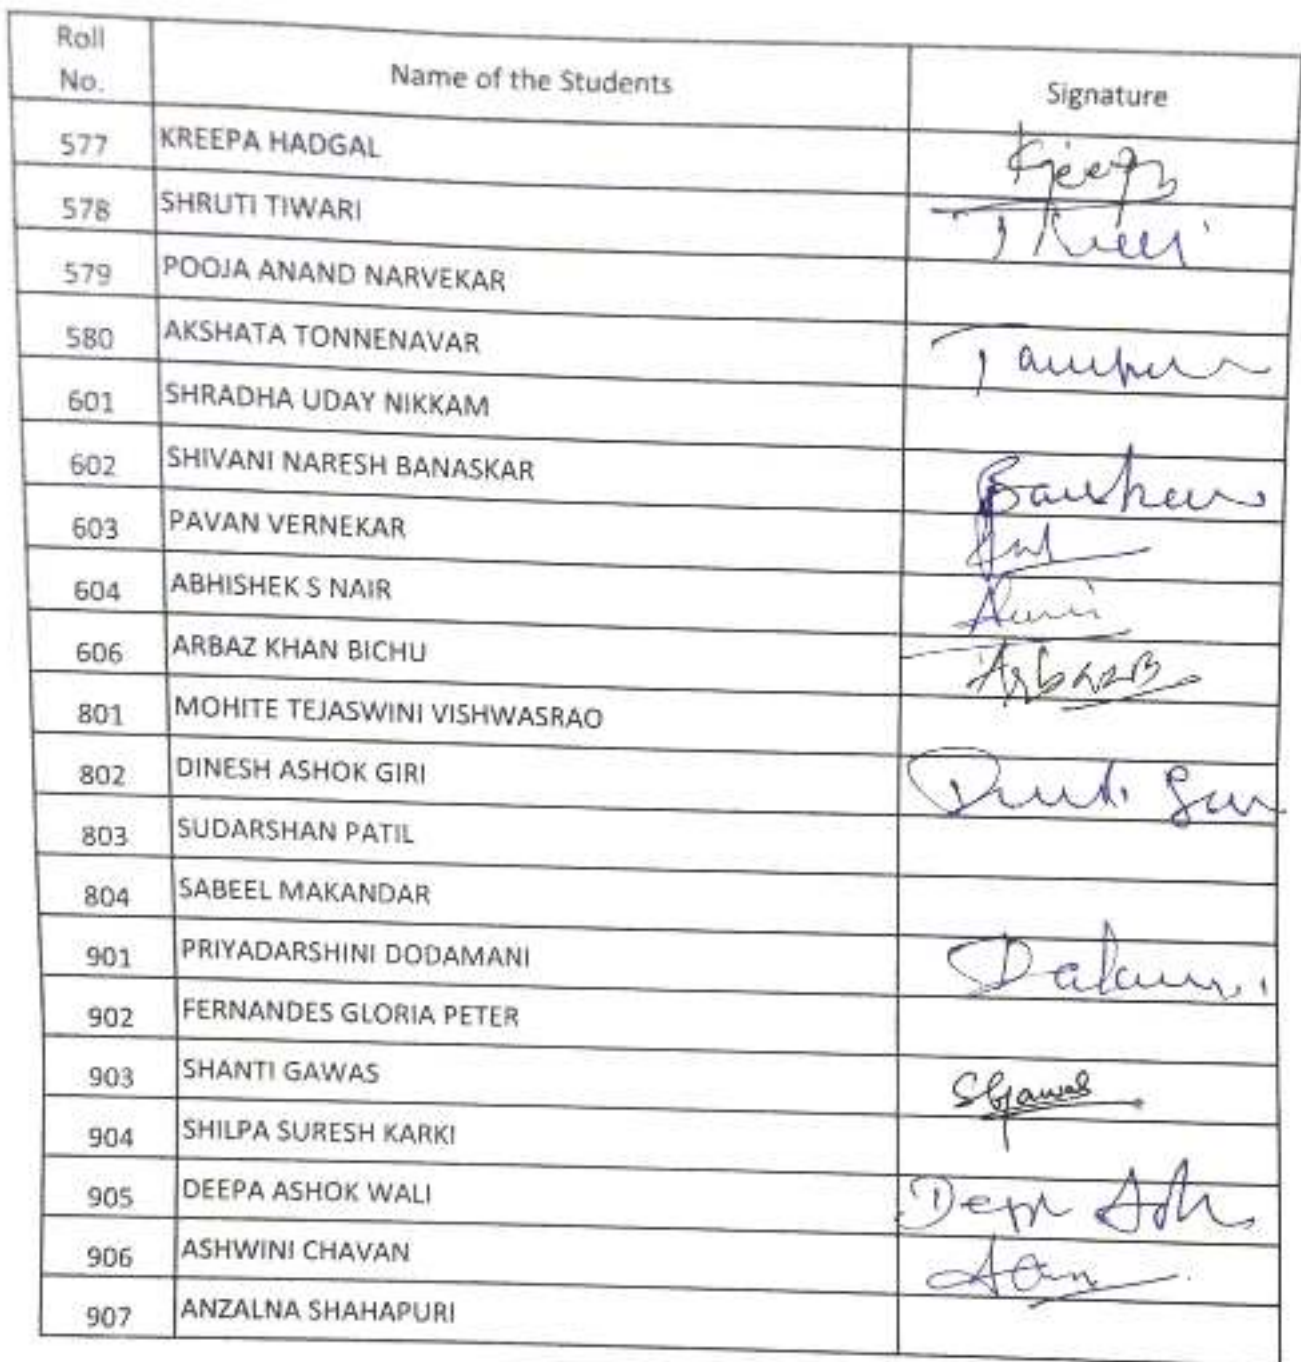 Roll No. Name of the Students Signature
577 KREEPA HADGAL Kreepa
578 SHRUTI TIWARI
579 POOJA ANAND NARVEKAR
580 AKSHATA TONNENAVAR
601 SHRADHA UDAY NIKKAM
602 SHIVANI NARESH BANASKAR
603 PAVAN VERNEKAR
604 ABHISHEK S NAIR
606 ARBAZ KHAN BICHU ArbazB
801 MOHITE TEJASWINI VISHWASRAO
802 DINESH ASHOK GIRI
803 SUDARSHAN PATIL
804 SABEEL MAKANDAR
901 PRIYADARSHINI DODAMANI
902 FERNANDES GLORIA PETER
903 SHANTI GAWAS SGawas
904 SHILPA SURESH KARKI
905 DEEPA ASHOK WALI
906 ASHWINI CHAVAN
907 ANZALNA SHAHAPURI